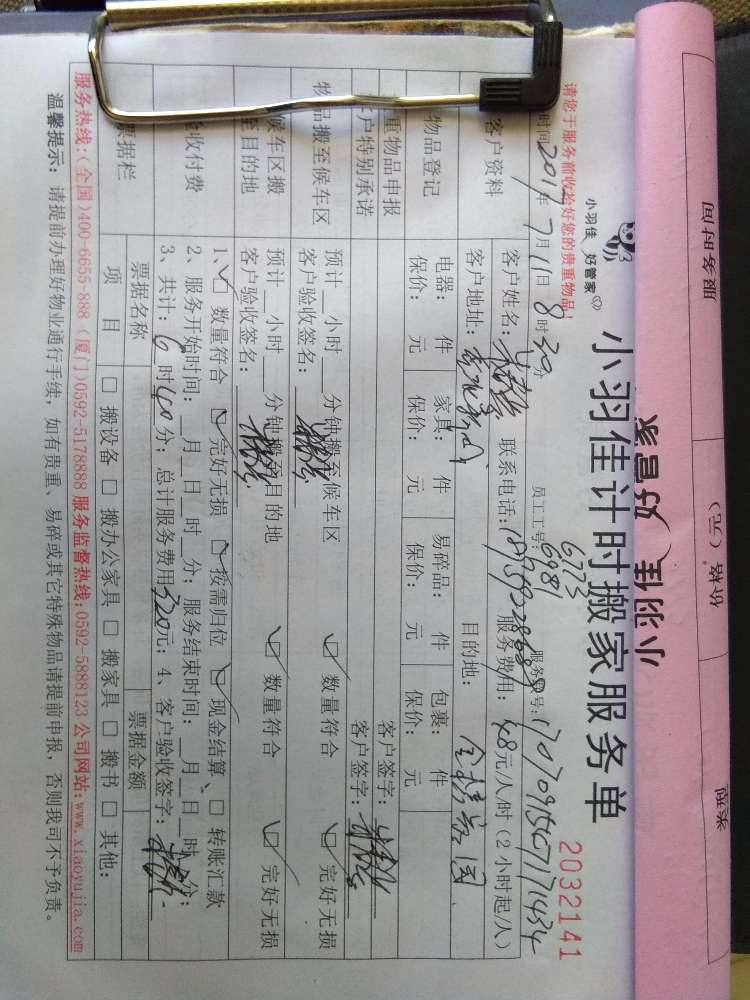 服务时间
价格（元）
类型
小羽佳 好管家
小羽佳 好管家
小羽佳计时搬家服务单
2032141
请您于服务前收拾好您的贵重物品！
员工工号：6773
6981
时间2017年7月11日8时30分
客户资料
客户姓名：
联系电话：
服务费用：48元/人/时（2小时起/人）
客户地址：
目的地：
物品登记
电器： 件 家具： 件 易碎品： 件 包裹： 件
保价： 元 保价： 元 保价： 元 保价： 元
重物品申报
客户签字：
户特别承诺
客户签字：
物品搬至候车区
预计__小时__分钟搬至候车区
客户验收签名：
数量符合
完好无损
候车区搬
至目的地
预计__小时__分钟搬至目的地
客户验收签名：
数量符合
完好无损
验收付费
1、 数量符合 完好无损 按需归位 现金结算、 转账汇款
2、服务开始时间：__月__日__时__分；服务结束时间：__月__日__时__分；
3、共计：6时40分；总计服务费用320元；4、客户验收签字：
票据栏
票据名称
票据金额
项目
搬设备 搬办公家具 搬家具 搬书 其他：
服务热线：（全国）400-6655-888（厦门）0592-5178888 服务监督热线：0592-5888123 公司网站：www.xiaoyujia.com
温馨提示：请提前办理好物业通行手续，如有贵重、易碎或其它特殊物品请提前申报，否则我司不予负责。